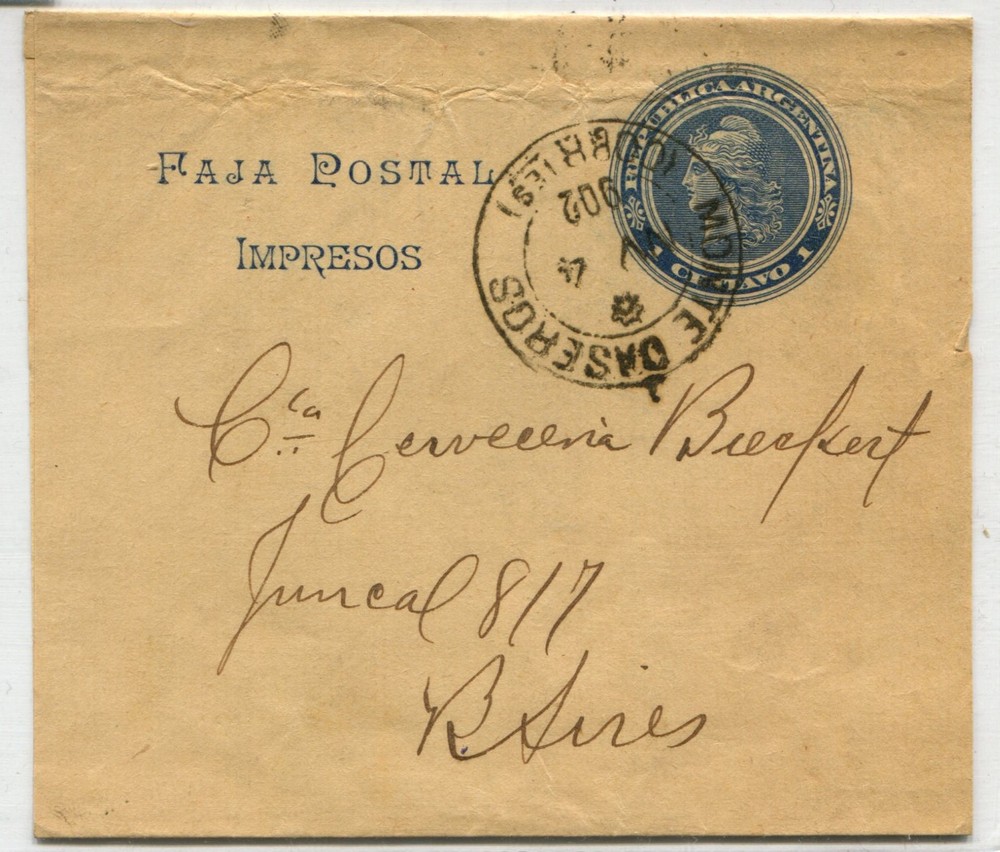 FAJA POSTAL
IMPRESOS
REPUBLICA ARGENTINA
1 CENTAVO 1
MONTE CASEROS
902
Cía Cervecería Bieckert
Juncal 817
B Aires